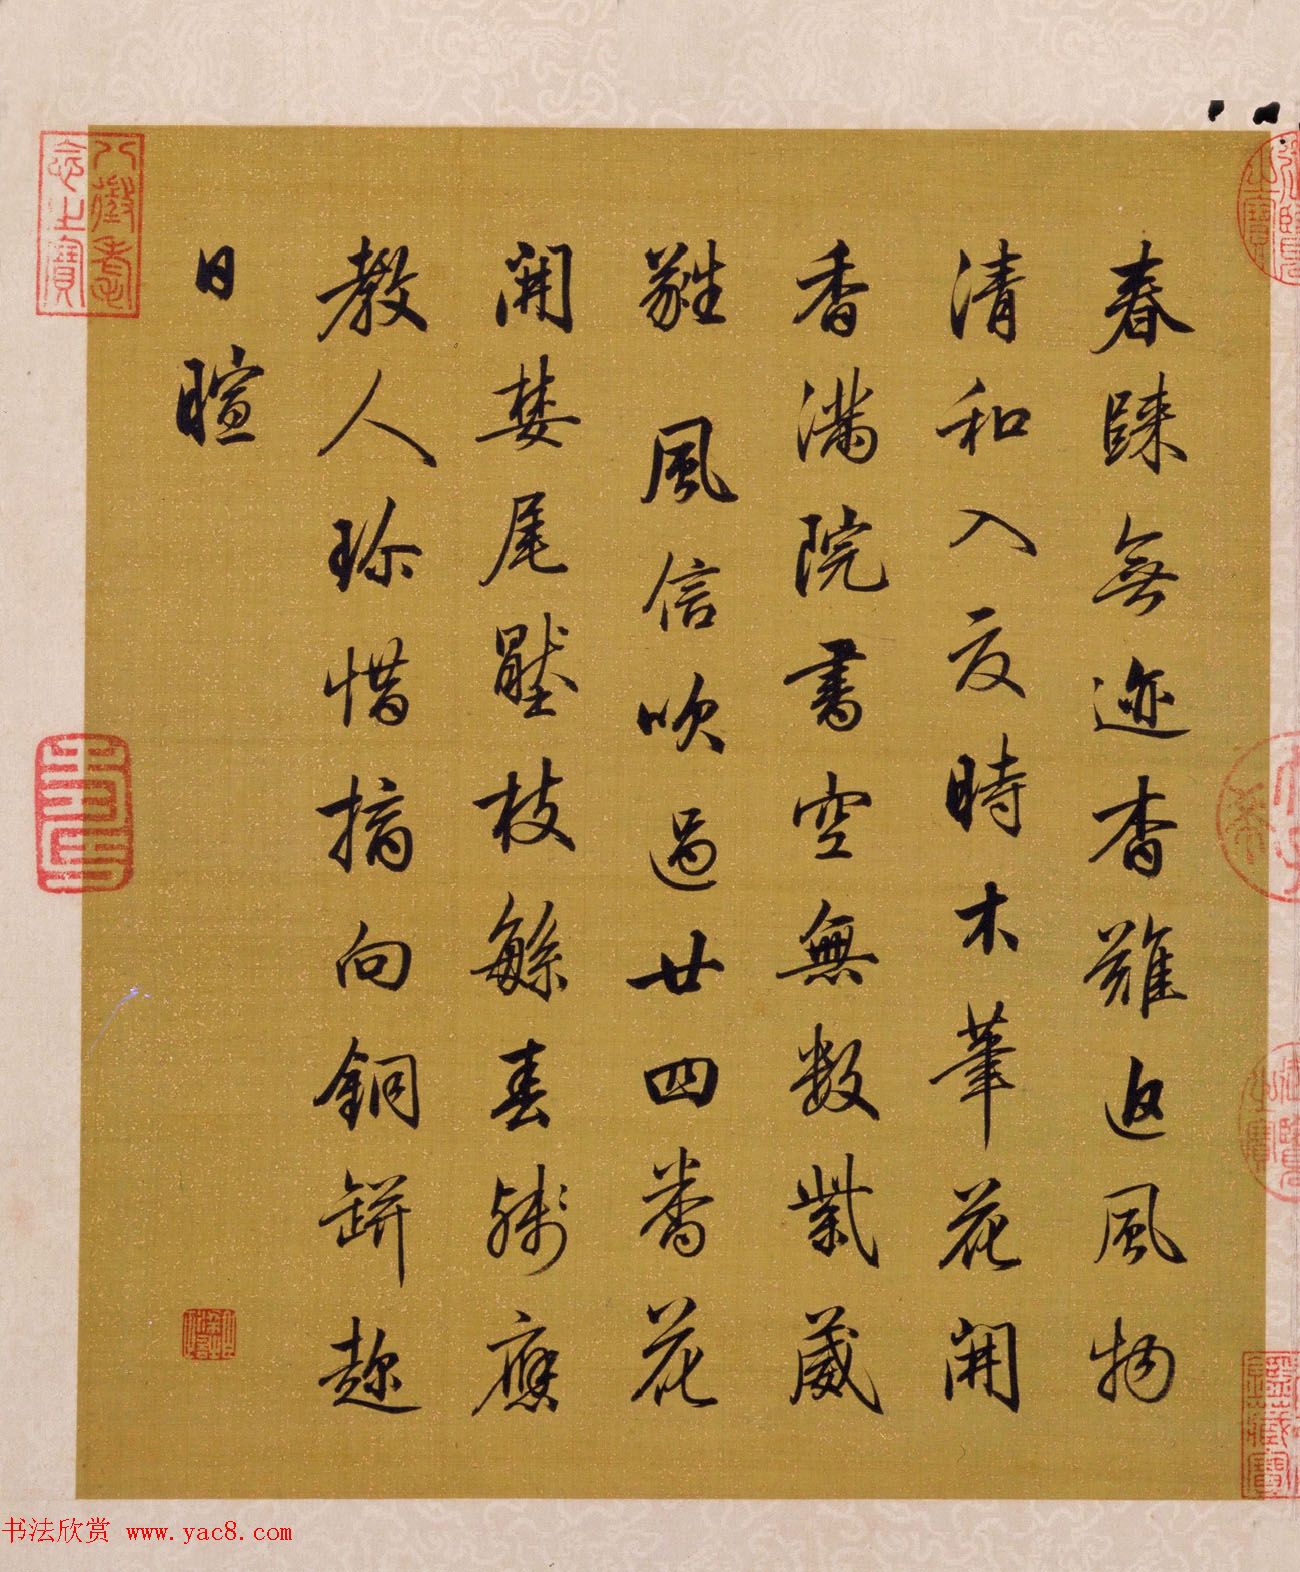 春歸無迹杳難追風物
清和入夏時木筆花開
香滿院書空無數紫葳
蕤 風信吹過廿四番花
開婪尾壓枝繁春殘應
教人珍惜摘向銅缾趂
日暄
八徵耄念之寶
书法欣赏 www.yac8.com